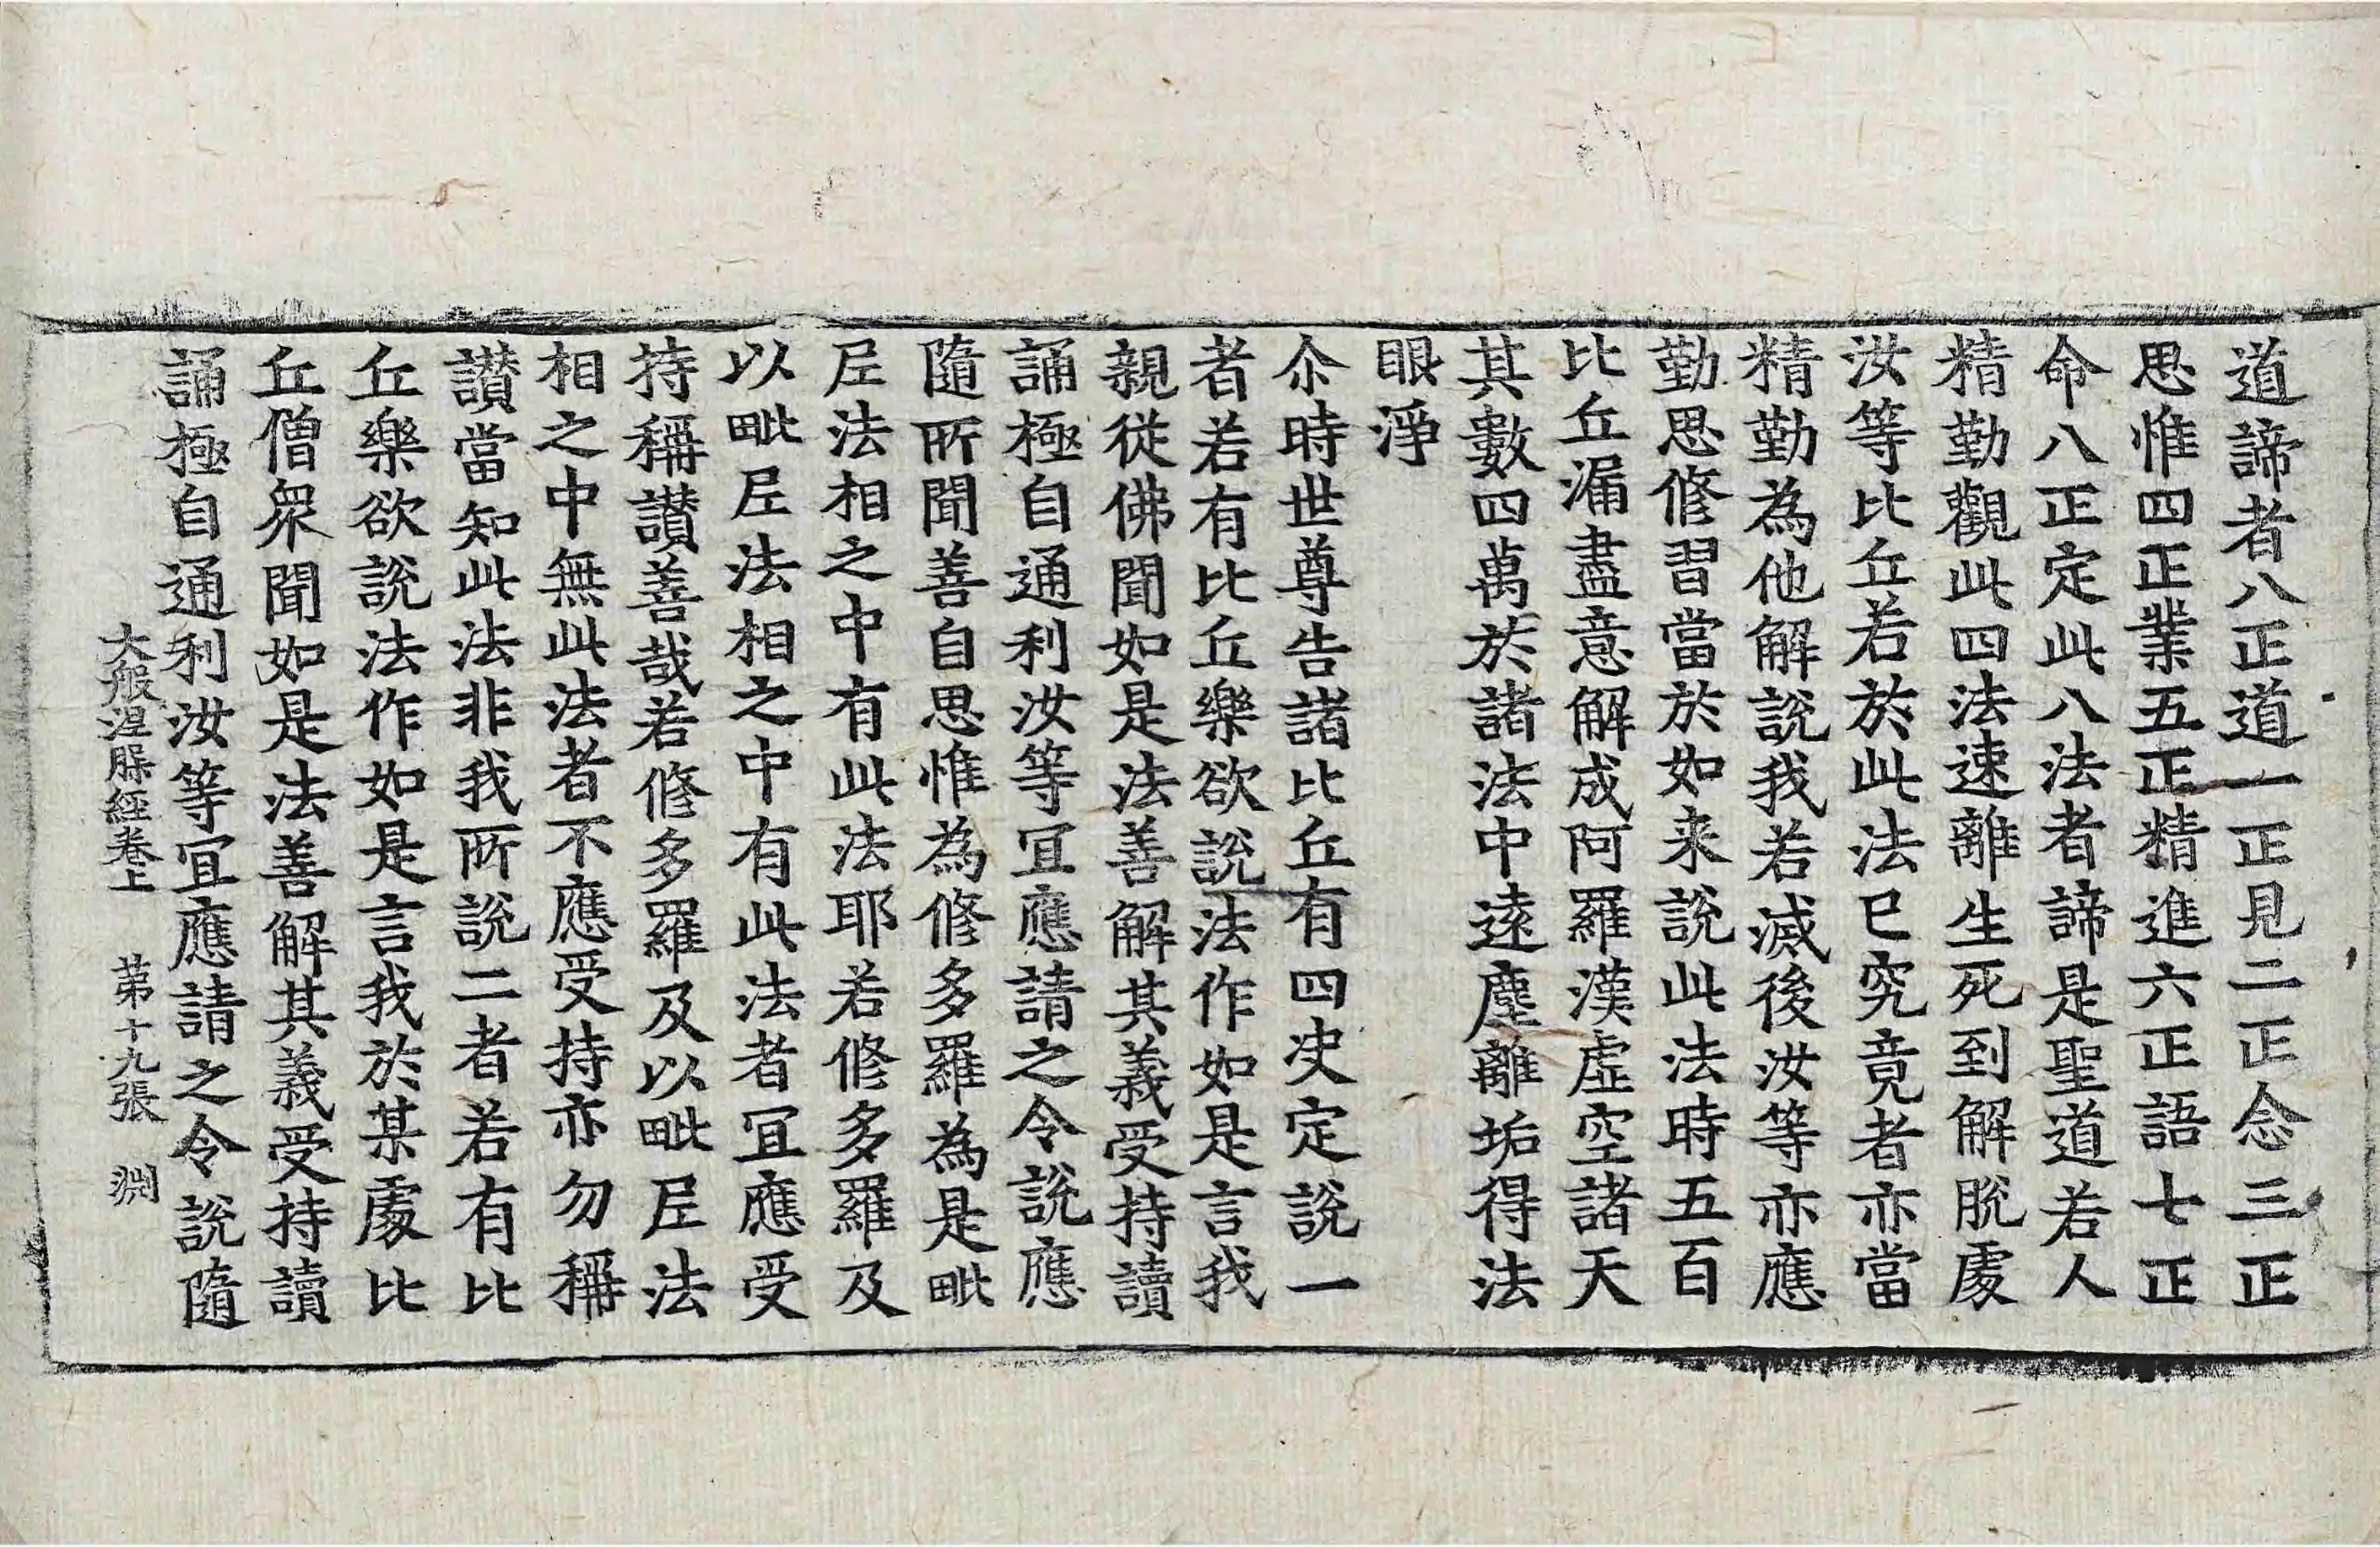 道諦者八正道一正見二正念三正
思惟四正業五正精進六正語七正
命八正定此八法者諦是聖道若人
精勤觀此四法速離生死到解脫處
汝等比丘若於此法已究竟者亦當
精勤為他解說我若滅後汝等亦應
勤思修習當於如来說此法時五百
比丘漏盡意解成阿羅漢虛空諸天
其數四萬於諸法中遠塵離垢得法
眼淨
尒時世尊告諸比丘有四决定說一
者若有比丘樂欲說法作如是言我
親從佛聞如是法善解其義受持讀
誦極自通利汝等宜應請之令說應
隨所聞善自思惟為修多羅為是毗
尼法相之中有此法耶若修多羅及
以毗尼法相之中有此法者宜應受
持稱讃善哉若修多羅及以毗尼法
相之中無此法者不應受持亦勿稱
讃當知此法非我所說二者若有比
丘樂欲說法作如是言我於某處比
丘僧衆聞如是法善解其義受持讀
誦極自通利汝等宜應請之令說隨
大般涅槃經卷上 第十九張 淵